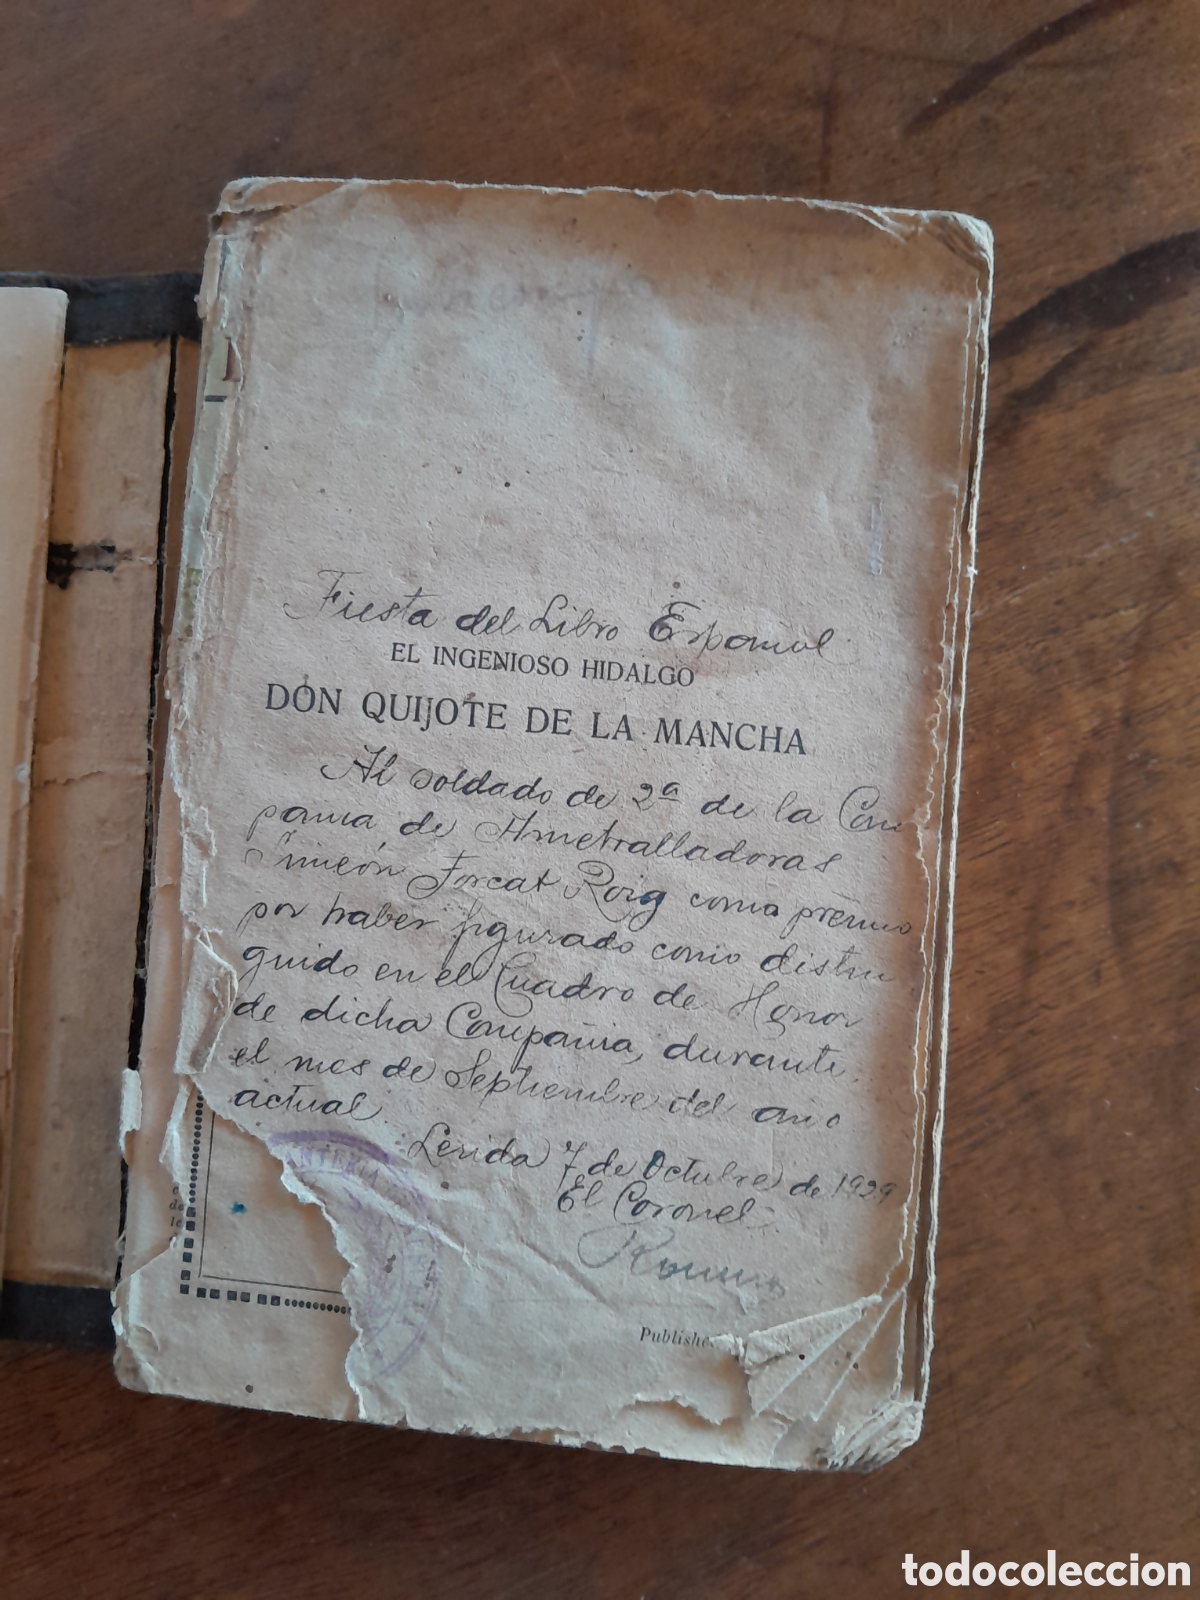 Fiesta del Libro Español
EL INGENIOSO HIDALGO
DON QUIJOTE DE LA MANCHA
Al soldado de 2ª de la Com
pañia de Ametralladoras
Simeón Forcat Roig como premio
por haber figurado como distin
guido en el Cuadro de Honor
de dicha Compañia, durante
el mes de Septiembre del año
actual.
Lerida 7 de Octubre de 1929
El Coronel
ANTERIA
Publishe
todocoleccion